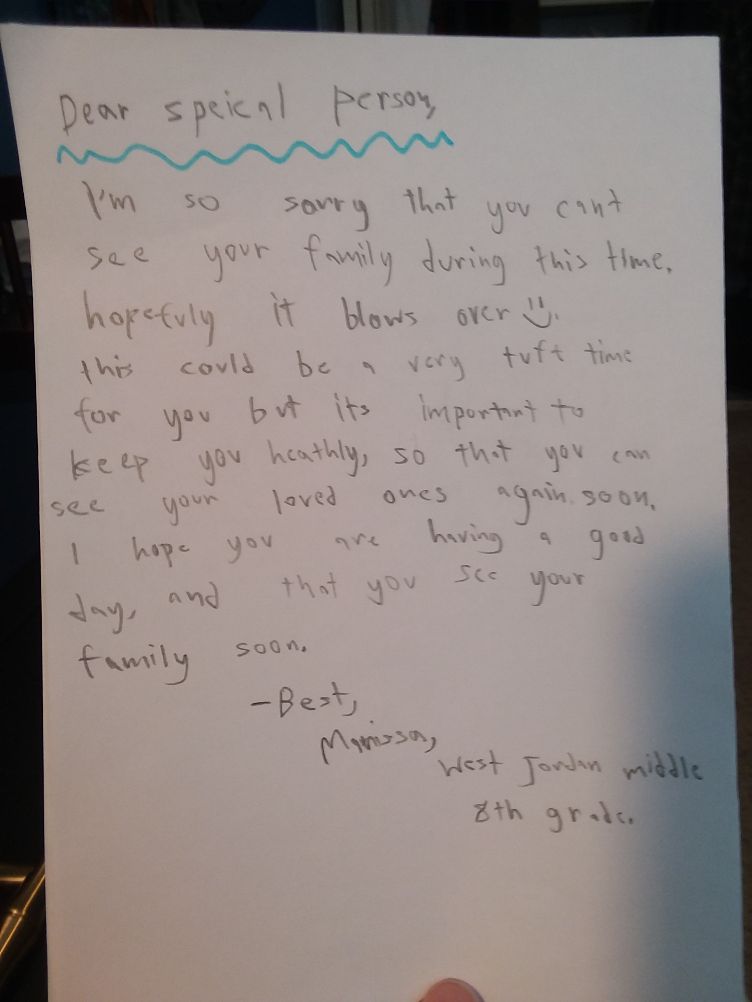 Dear speical person,
I'm so sorry that you cant
see your family during this time.
hopefuly it blows over :).
this could be a very tuft time
for you but its important to
keep you heathly, so that you can
see your loved ones again. soon.
I hope you are having a good
day, and that you see your
family soon.
-Best,
Marissa,
West Jordan middle
8th grade.